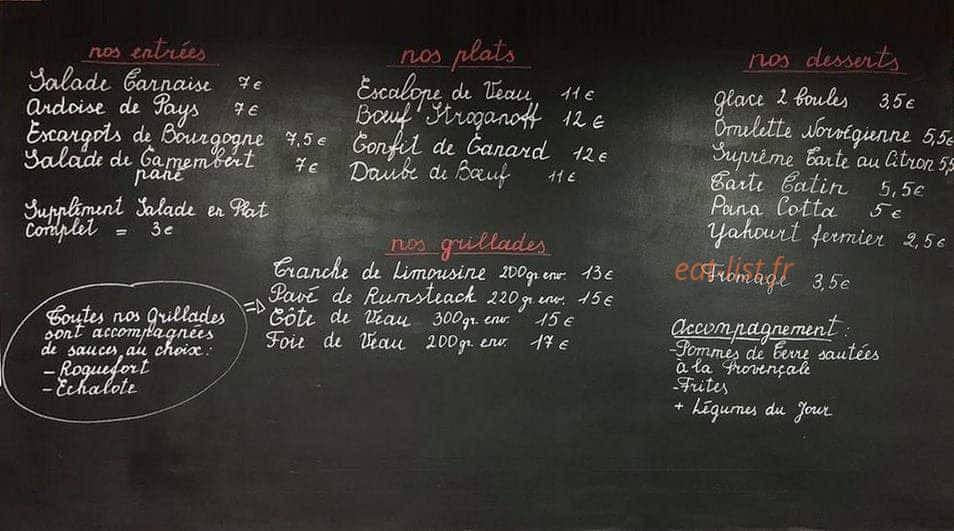 nos entrées
Salade Carnaise 7€
Ardoise de Pays 7€
Escargots de Bourgogne 7,5€
Salade de Camembert 7€
pané
Supplément Salade en Plat
Complet = 3€
Toutes nos Grillades
sont accompagnées
de sauces au choix:
- Roquefort
- Echalote
nos plats
Escalope de Veau 11€
Bœuf Stroganoff 12€
Confit de Canard 12€
Daube de Bœuf 11€
nos grillades
=> Tranche de Limousine 200gr env. 13€
Pavé de Rumsteack 220gr env. 15€
Côte de Veau 300gr env. 15€
Foie de Veau 200gr env. 17€
nos desserts
Glace 2 boules 3,5€
Omelette Norvégienne 5,5€
Suprême Tarte au Citron 5,5
Tarte Tatin 5,5€
Pana Cotta 5€
Yahourt fermier 2,5€
eat-list.fr
Fromage 3,5€
Accompagnement:
- Pommes de Terre sautées
à la Provençale
- Frites
+ Légumes du Jour